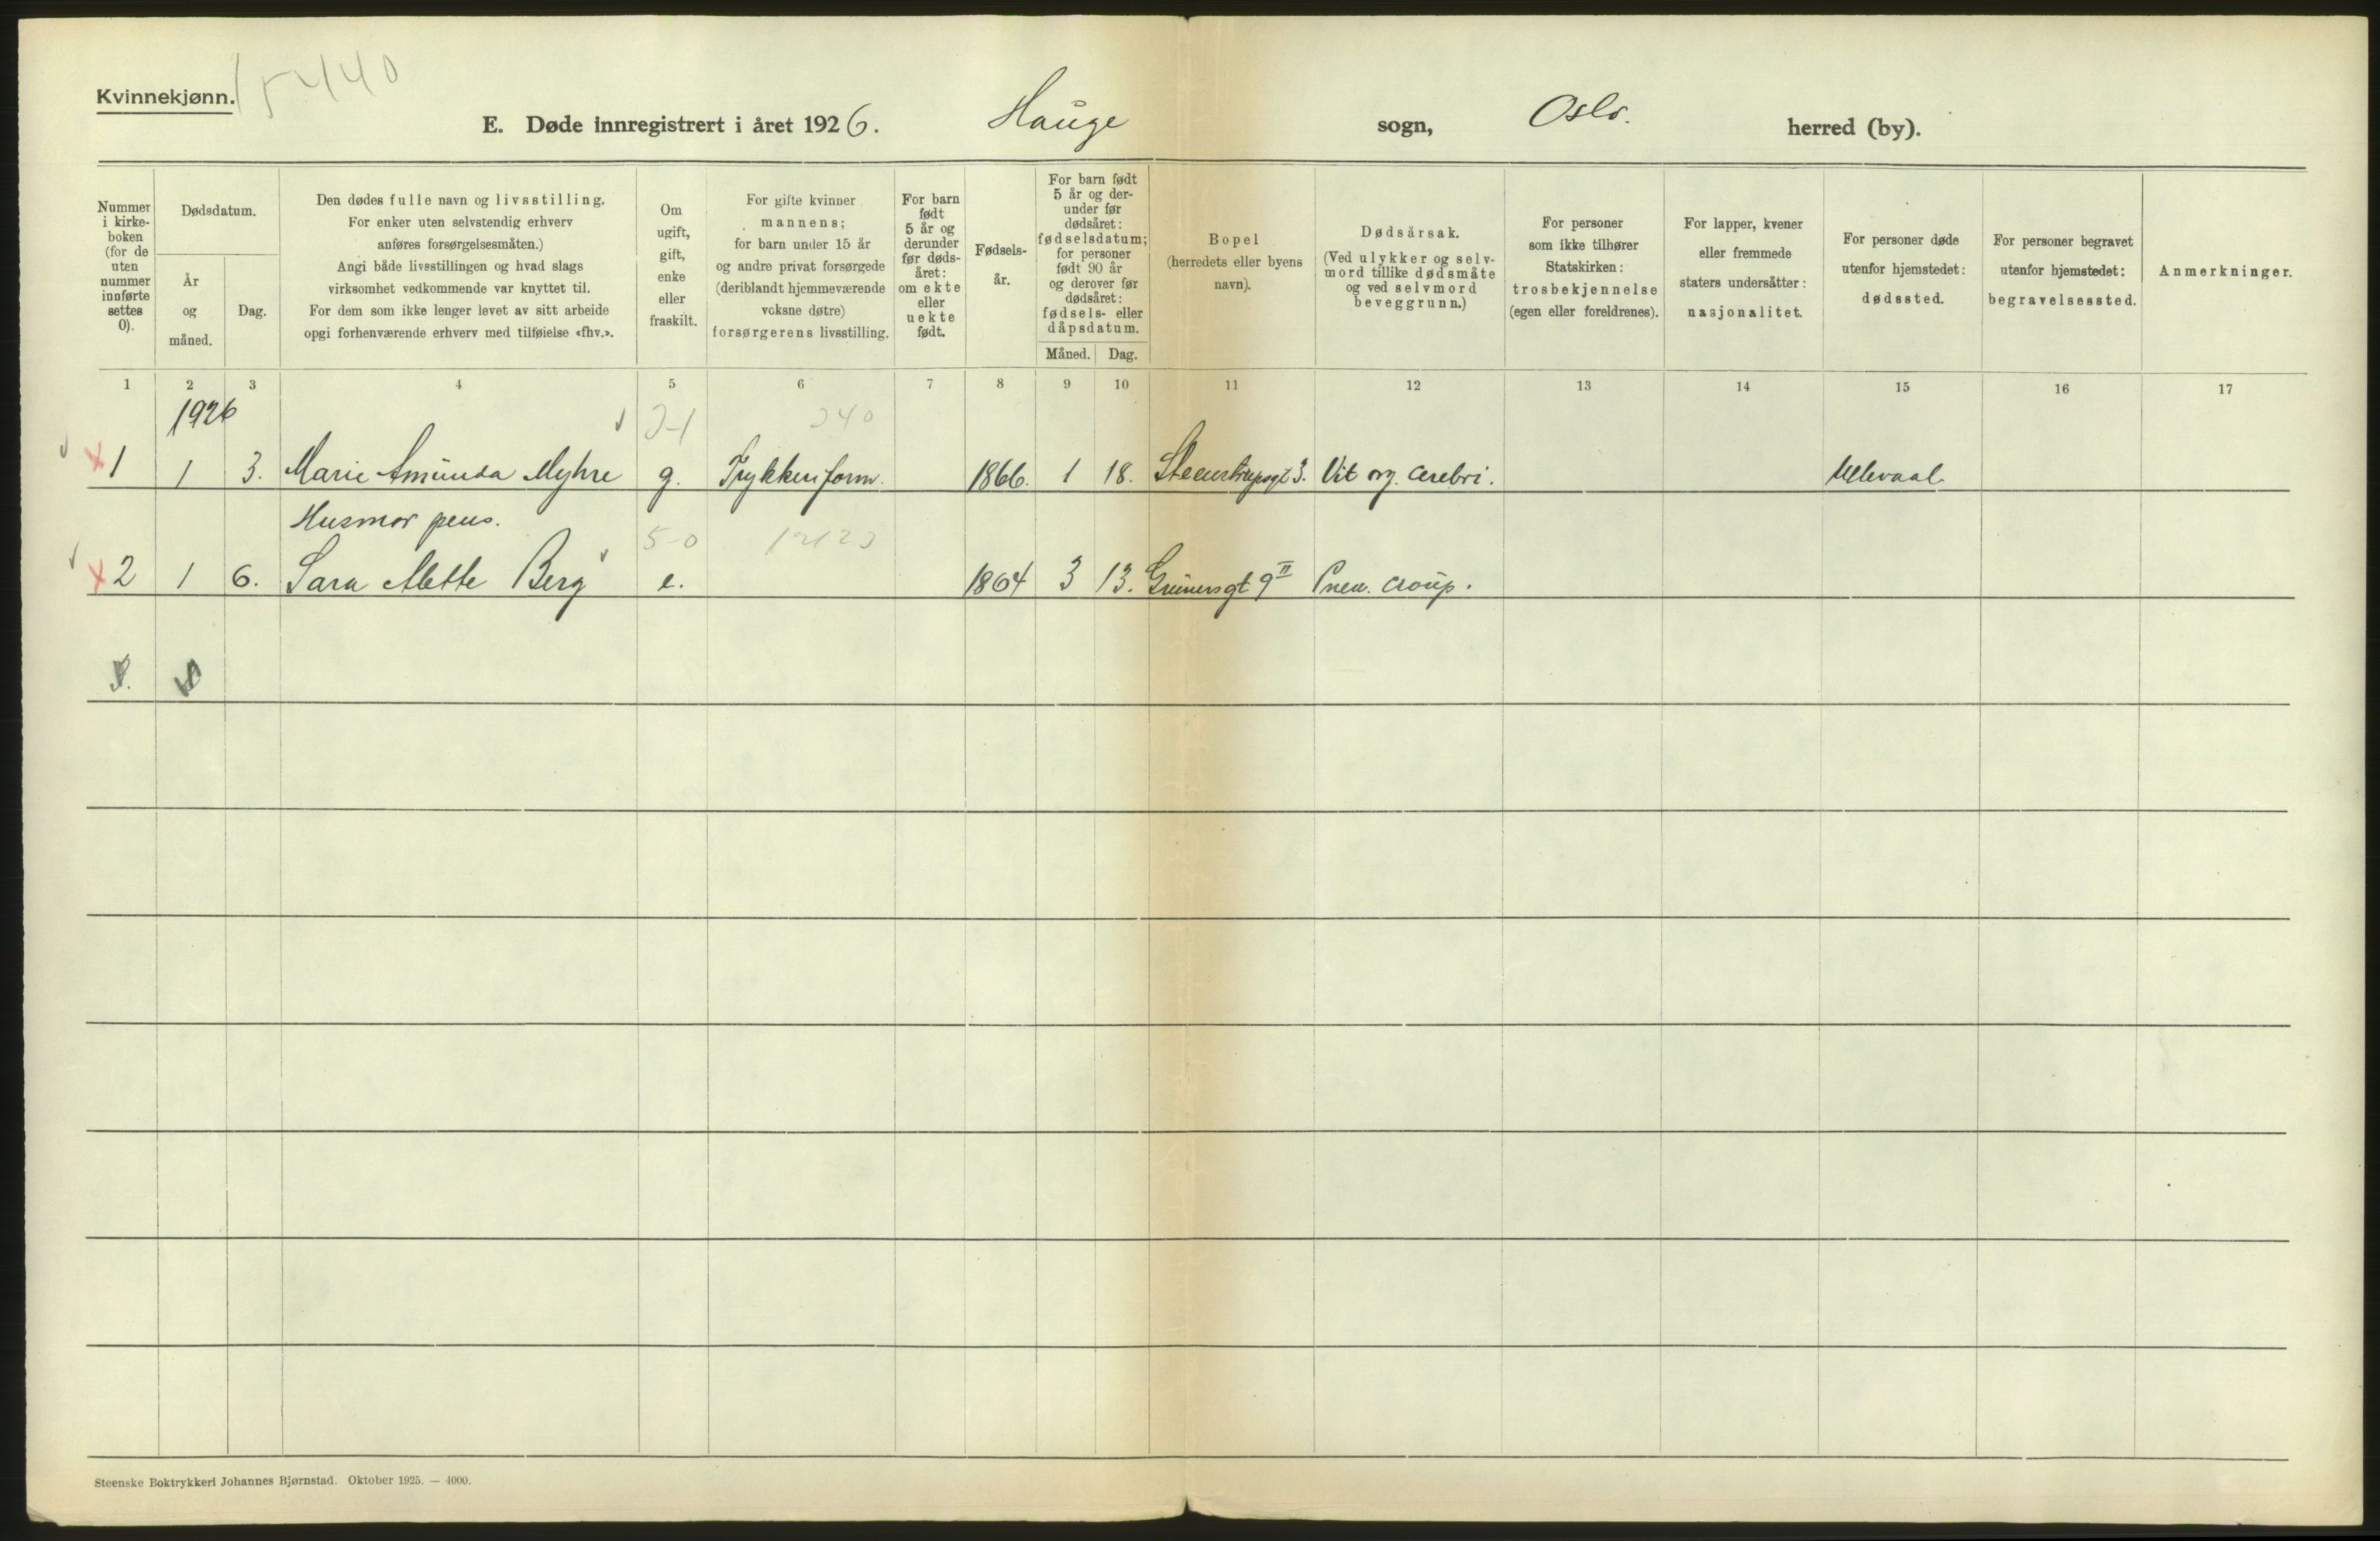 Kvinnekjønn.
15440
E. Døde innregistrert i året 1926. Hauge sogn, Oslo. herred (by).
Nummer i kirke-boken (for de uten nummer innførte settes 0).
Dødsdatum.
År og måned.
Dag.
Den dødes fulle navn og livsstilling.
For enker uten selvstendig erhverv
anføres forsørgelsesmåten.)
Angi både livsstillingen og hvad slags
virksomhet vedkommende var knyttet til.
For dem som ikke lenger levet av sitt arbeide
opgi forhenværende erhverv med tilføielse «fhv.».
Om
ugift,
gift,
enke
eller
fraskilt.
For gifte kvinner
mannens;
for barn under 15 år
og andre privat forsørgede
(deriblandt hjemmeværende
voksne døtre)
forsørgerens livsstilling.
For barn
født
5 år og
derunder
før døds-
året:
om ekte
eller
uekte
født.
Fødsels-
år.
For barn født
5 år og der-
under før
dødsåret:
fødselsdatum;
for personer
født 90 år
og derover før
dødsåret:
fødsels- eller
dåpsdatum.
Måned. Dag.
Bopel
(herredets eller byens
navn).
Dødsårsak.
(Ved ulykker og selv-
mord tillike dødsmåte
og ved selvmord
beveggrunn.)
For personer
som ikke tilhører
Statskirken:
trosbekjennelse
(egen eller foreldrenes).
For lapper, kvener
eller fremmede
staters undersåtter:
nasjonalitet.
For personer døde
utenfor hjemstedet:
dødssted.
For personer begravet
utenfor hjemstedet:
begravelsessted.
Anmerkninger.
1 2 3 4 5 6 7 8 9 10 11 12 13 14 15 16 17
1926
1 1 3. Marie Amunda Myhre g. Trykkeriform. 1866. 1 18. Steenstrupsgt 3. Vit org. cerebri. Ullevaal.
Husmor pens.
2 1 6. Sara Mette Berg e. 1864 3 13. Grünersgt 9 II Pneu. croup.
Steenske Boktrykkeri Johannes Bjørnstad. Oktober 1925. — 4000.